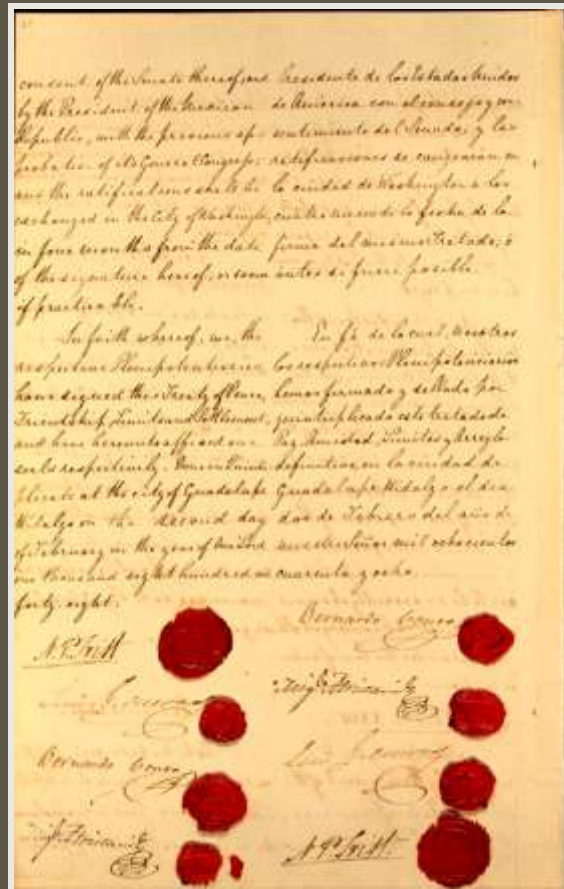 consent of the Senate thereof; and
by the President of the Mexican
Republic, with the previous ap-
probation of its General Congress;
and the ratifications shall be
exchanged in the City of Washington,
in four months from the date
of the signature hereof, or sooner
if practicable.
In faith whereof, we, the
respective Plenipotentiaries,
have signed this Treaty of Peace,
Friendship, Limits and Settlement,
and have hereunto affixed our
seals respectively. Done in Quintu-
plicate at the city of Guadalupe
Hidalgo on the second day
of February in the year of Our Lord
one thousand eight hundred and
forty-eight.
Presidente de los Estados Unidos
de América con el consejo y con-
sentimiento del Senado; y las
ratificaciones se cangearán en
la ciudad de Washington a los
cuatro meses de la fecha de la
firma del mismo Tratado, ó
antes si fuere posible.
En fé de lo cual, nosotros
los respectivos Plenipotenciarios
hemos firmado y sellado por
quintuplicado este tratado de
Paz, Amistad, Límites y Arreglo
definitivo, en la ciudad de
Guadalupe Hidalgo el dia
dos de Febrero del año de
nuestro Señor mil ochocientos
cuarenta y ocho.
Bernardo Couto
N. P. Trist
Bernardo Couto
N. P. Trist